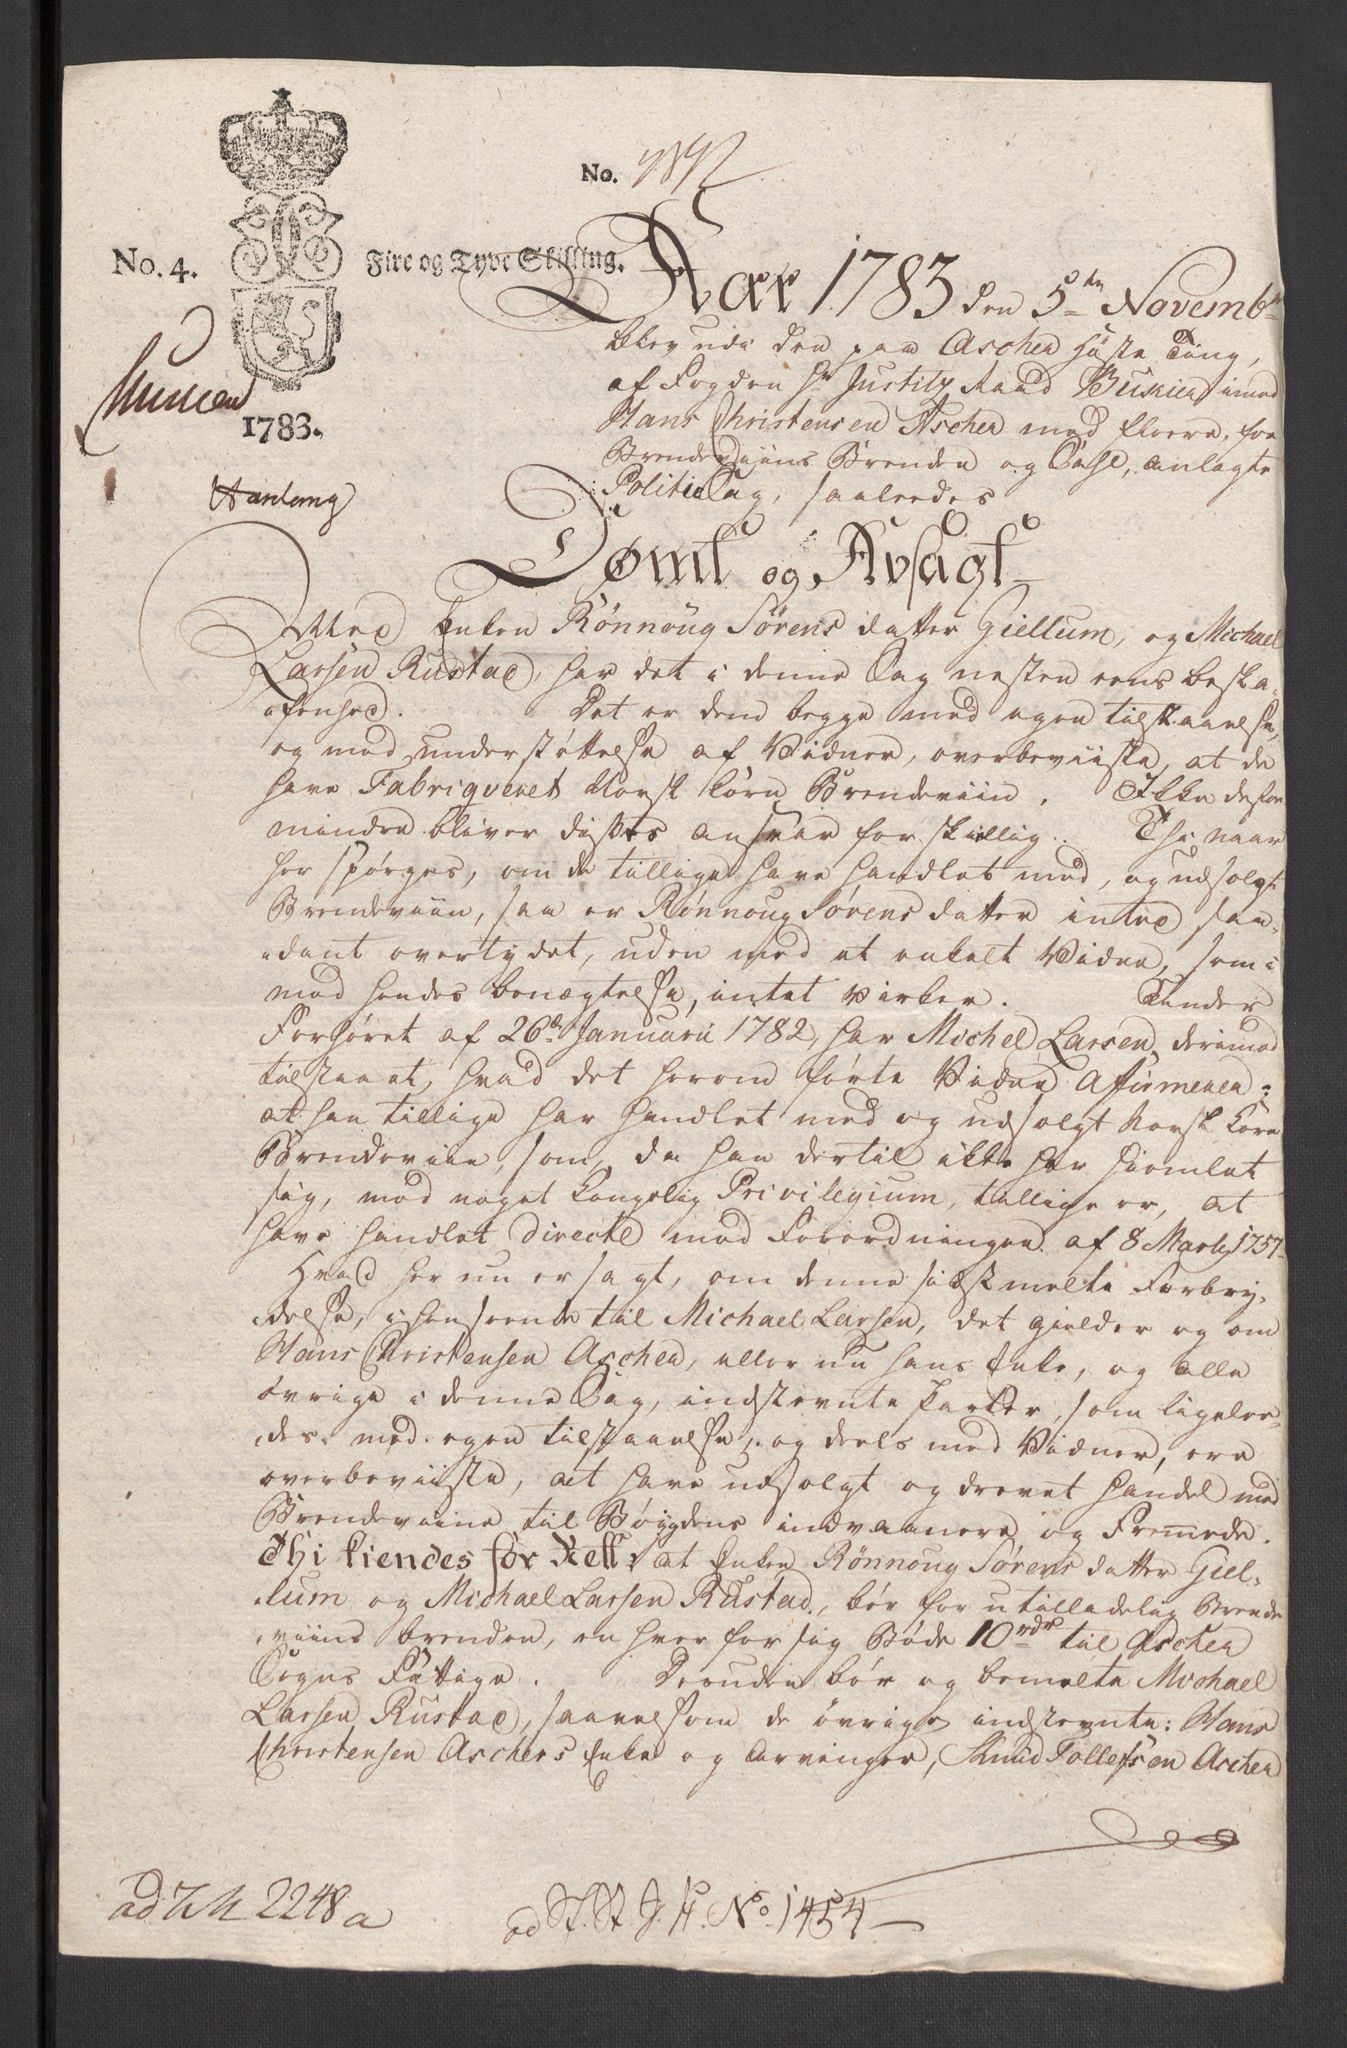 No. 1842
No. 4.
Fire og Tyve Skilling.
1783.
Aar 1783 den 5te Novembr
blev udi den paa Ascher Høste Ting,
af Fogden Hr Justitz Raad imod
Hans Christensen Ascher med fleere, for
Brendeviins Brenden og Salg, anlagte
Politie Sag, saaledes
Dømt og Avsagt
Med Enken Rönnoug Sørens datter Giellum, og Michael
Larsen Rustad, har det i denne Sag nesten eens beska-
fenhed. Det er dem begge med egen tilstaaelse,
og med understøttelse af Vidner, overbeviiste, at de
have Fabriqveret Norsk Korn Brendeviin. Ikke desto
mindre bliver disses ansvar forskiellig. Thi naar
her spørges, om de tillige have handlet med, og udsolgt
Brendeviin, saa er Rønnoug Sørens datter intet saa-
dant overtydet, uden med et enkelt Vidne, som i
mod hendes benægtelse, intet virker. Under
Forhöret af 26de Januarii 1782, har Michel Larsen, derimod
tilstaaet, hvad det herom førte Vidne Affirmerer:
at han tillige har handlet med og udsolgt Norsk Korn
Brendeviin, som, da han dertil ikke har hiemlet
sig, med noget Kongelig Privilegium, tillige er, at
have handlet directe mod Forordningen af 8 Martj 1757.
Hvad her nu er sagt, om denne sidstmelte Forbry-
delse, i henseende til Michael Larsen, det gielder og om
Hans Christensen Ascher, eller nu hans Enke, og alle
øvrige i denne Sag, indstevnte Parter, som ligelee-
des med egen tilstaaelse, og deels med Vidner, ere
overbeviiste, at have udsolgt og drevet Handel med
Brendeviine til Böygdens indvaanere og Fremede.
Thi kiendes for Rett: at Enken Rönnoug Sørens datter Giel-
lum og Michael Larsen Rustad, bör for utilladelig Brende
viins brenden, en hver for sig Bøde 10 rdr til Ascher
Sogns Fattige. Desuden bör og bemelte Michael
Larsen Rustad, saavelsom de övrige indstevnte: Hans
Christensen Aschers Enke og Arvinger, Knud Tollefsen Ascher
2248 a
ad No. 1454